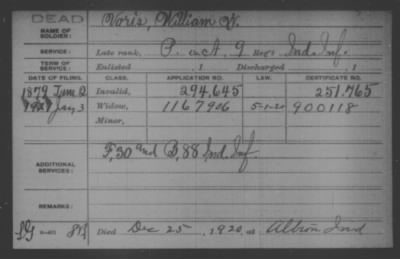 DEAD
NAME OF SOLDIER: Voris, William V.
SERVICE: Late rank, P. Regt. Ind. Inf.
TERM OF SERVICE: Enlisted , 1 Discharged , 1
DATE OF FILING. CLASS. APPLICATION NO. LAW. CERTIFICATE NO.
1879 June 12 Invalid, 294,645 251,765
Jan 3 Widow, 1167906 5-1-20 900118
Minor,
ADDITIONAL SERVICES: F, 30 and B, 88 Ind. Inf.
REMARKS:
Died Dec 25, 1920, at Albion Ind